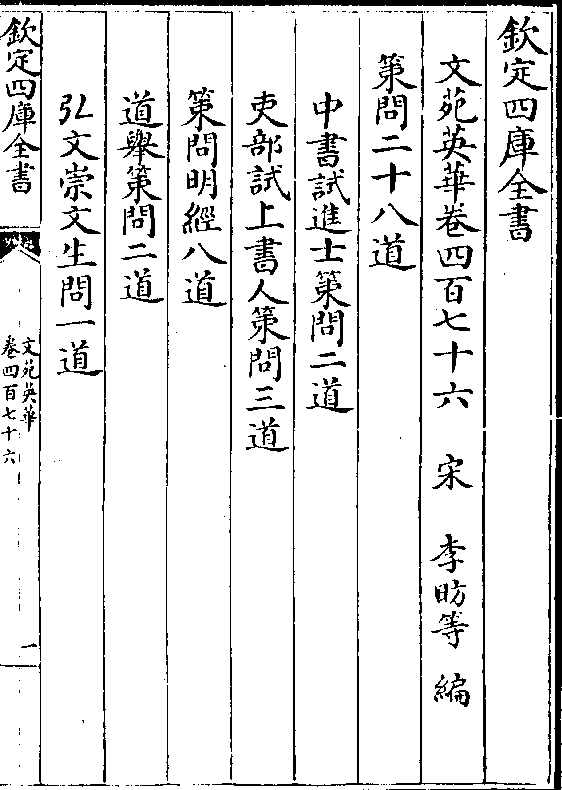 欽定四庫全書
文苑英華卷四百七十六　宋　李昉等　編
策問二十八道
中書試進士策問二道
吏部試上書人策問三道
策問明經八道
道舉策問二道
弘文崇文生問一道
欽定四庫全書
文苑英華
卷四百七十六
一